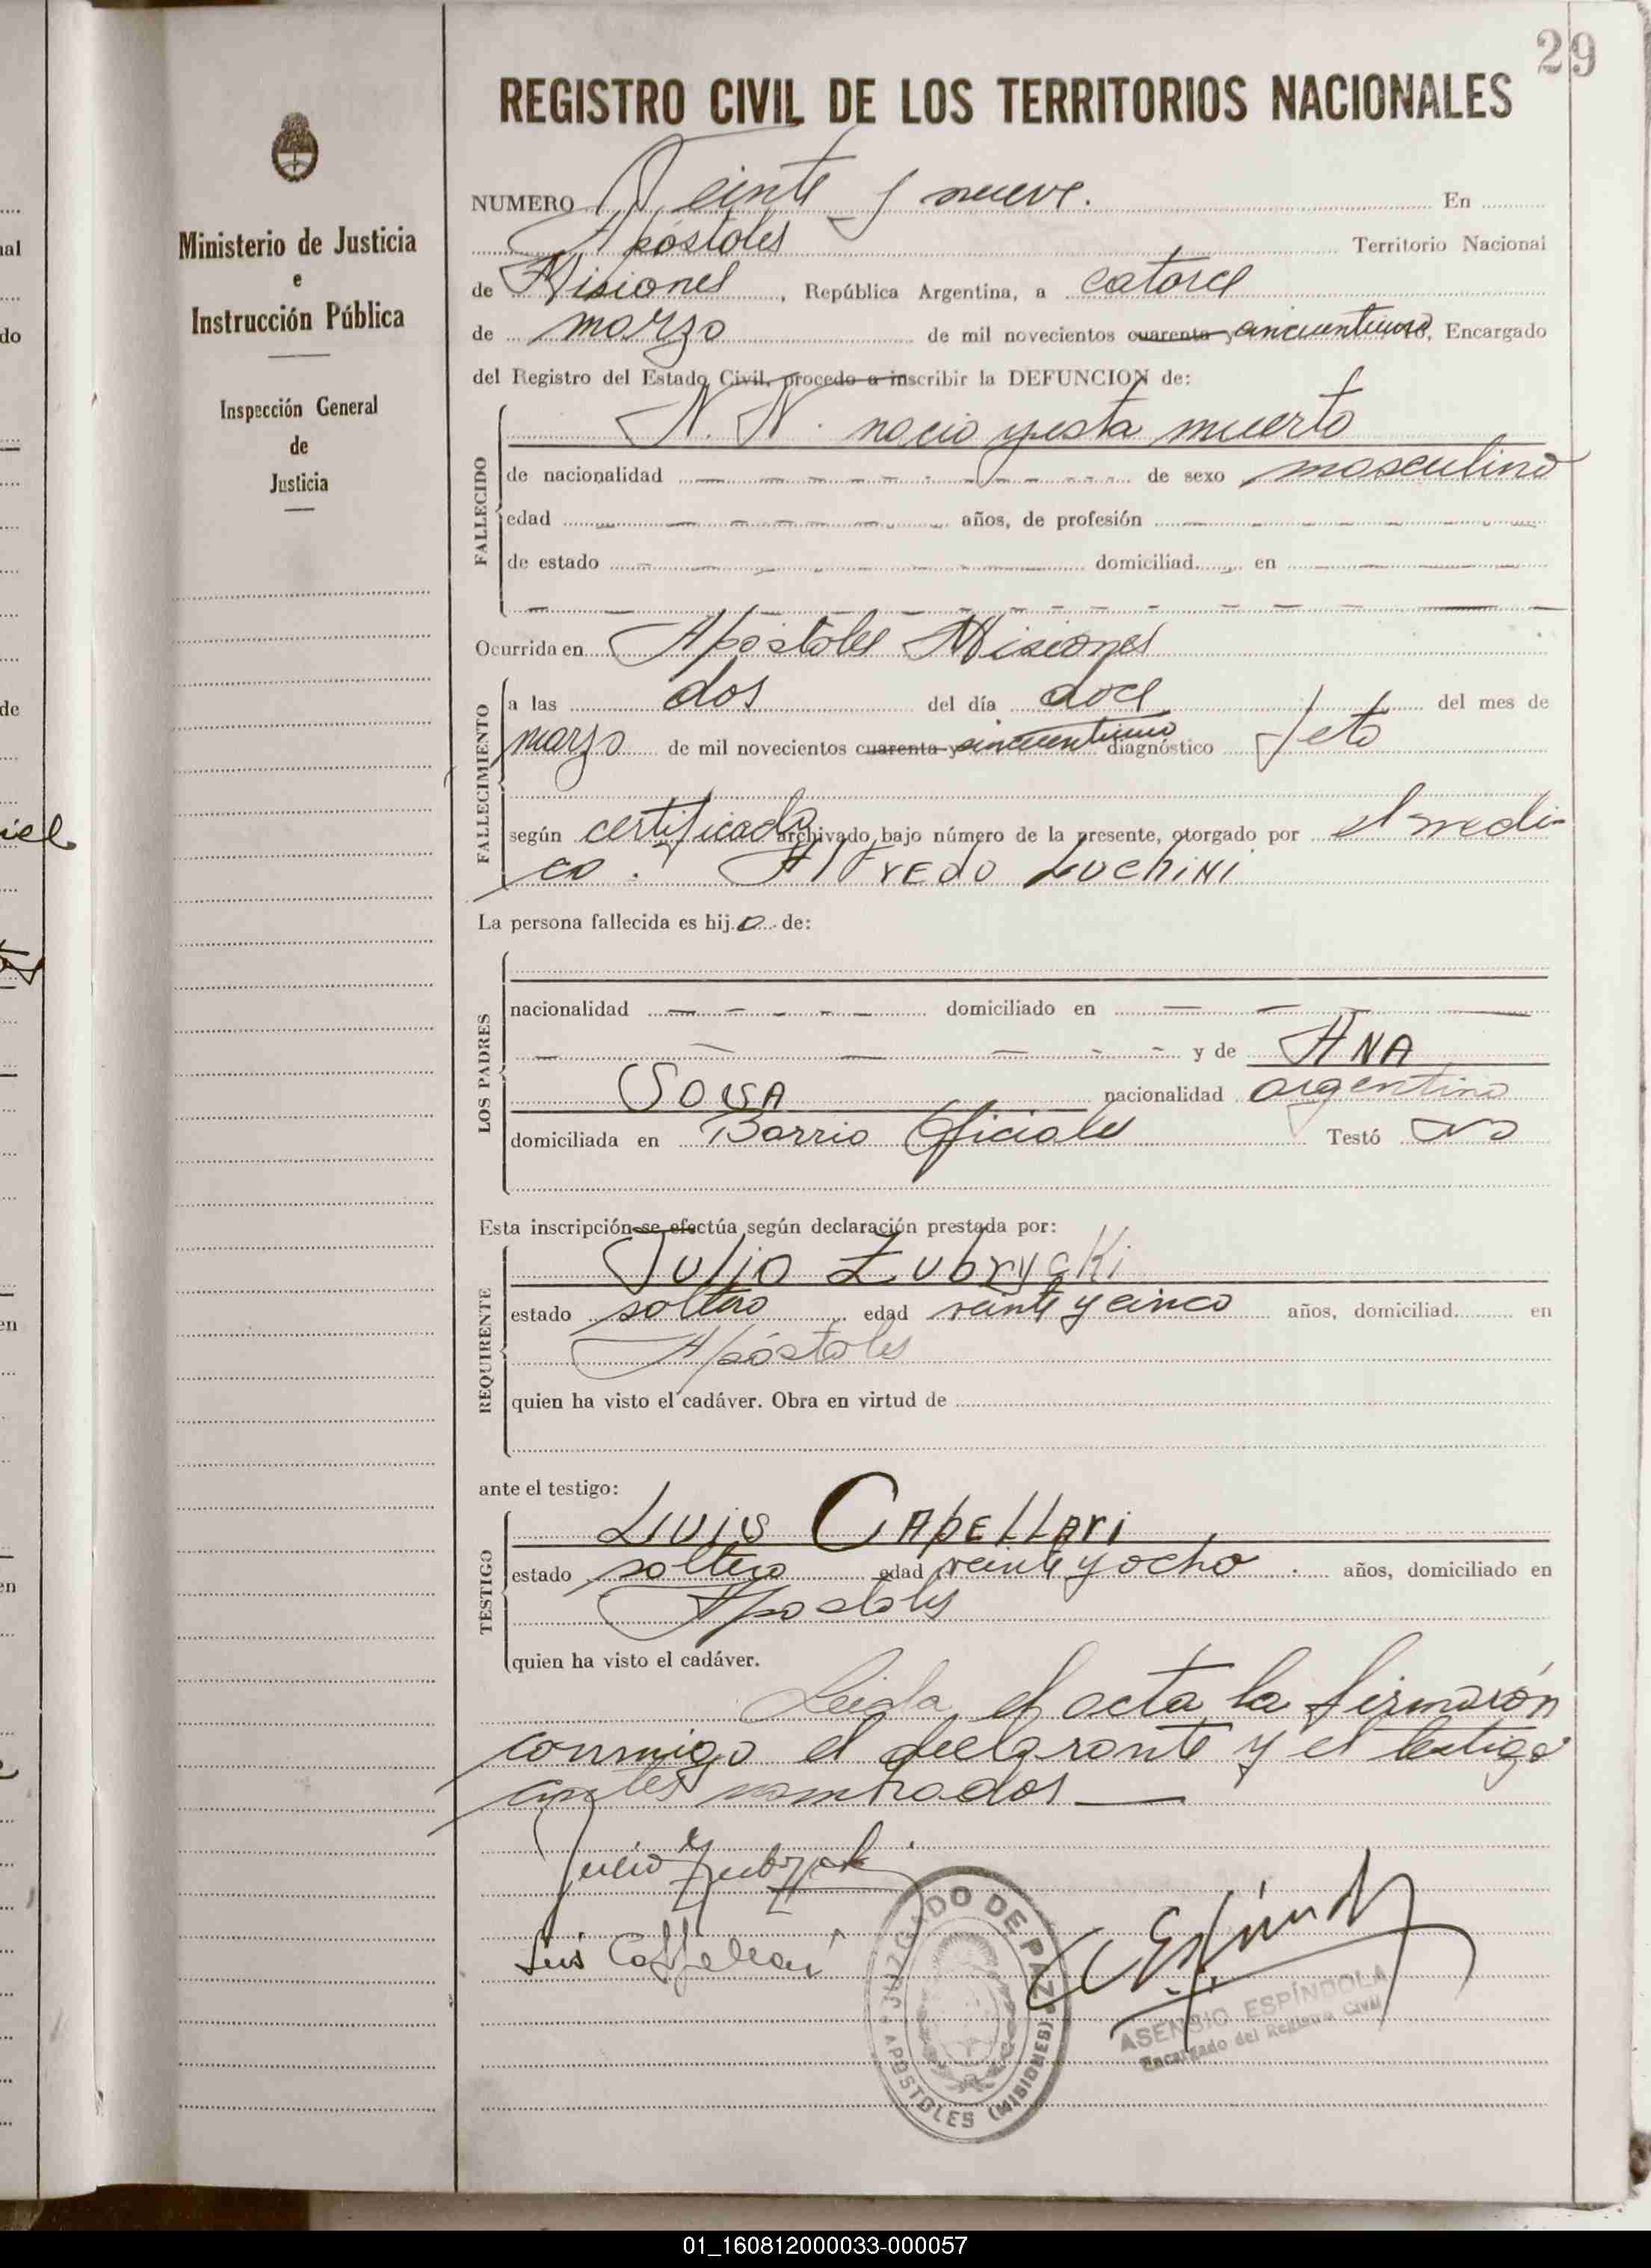 29
REGISTRO CIVIL DE LOS TERRITORIOS NACIONALES
Ministerio de Justicia
e
Instrucción Pública
Inspección General
de
Justicia
NUMERO Veinte y nueve. En
Apóstoles Territorio Nacional
de Misiones, República Argentina, a catorce
de marzo de mil novecientos cuarenta y cincuentiuno, Encargado
del Registro del Estado Civil, procedo a inscribir la DEFUNCION de:
FALLECIDO
N. N. nacio y esta muerto
de nacionalidad de sexo masculino
edad años, de profesión
de estado domiciliad en
Ocurrida en Apóstoles Misiones
FALLECIMIENTO
a las dos del día doce del mes de
marzo de mil novecientos cuarenta y cincuentiuno diagnóstico feto
según certificado archivado bajo número de la presente, otorgado por el medi-
co. Alfredo Luchini
La persona fallecida es hijo de:
LOS PADRES
nacionalidad domiciliado en
y de ANA
SOUSA nacionalidad argentina
domiciliada en Barrio Oficiales Testó No
Esta inscripción se efectúa según declaración prestada por:
REQUIRENTE
Julio Zubrycki
estado soltero edad veinte y cinco años, domiciliad en
Apóstoles
quien ha visto el cadáver. Obra en virtud de
ante el testigo:
TESTIGO
Luis Capellari
estado soltero edad veinte y ocho. años, domiciliado en
Apostoles
quien ha visto el cadáver.
Leida el acta la firmarón
conmigo el declarante y el testigo
antes nombrados
Julio
Luis Cappellari
JUZGADO DE PAZ
APOSTOLES (MISIONES)
ASENSIO ESPÍNDOLA
Encargado del Registro Civil
01_160812000033-000057